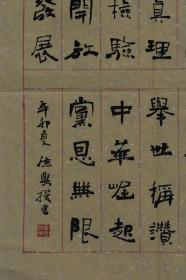 真理
檢驗
開放
發展
舉世稱讚
中華崛起
黨恩無限
辛卯夏德興撰書